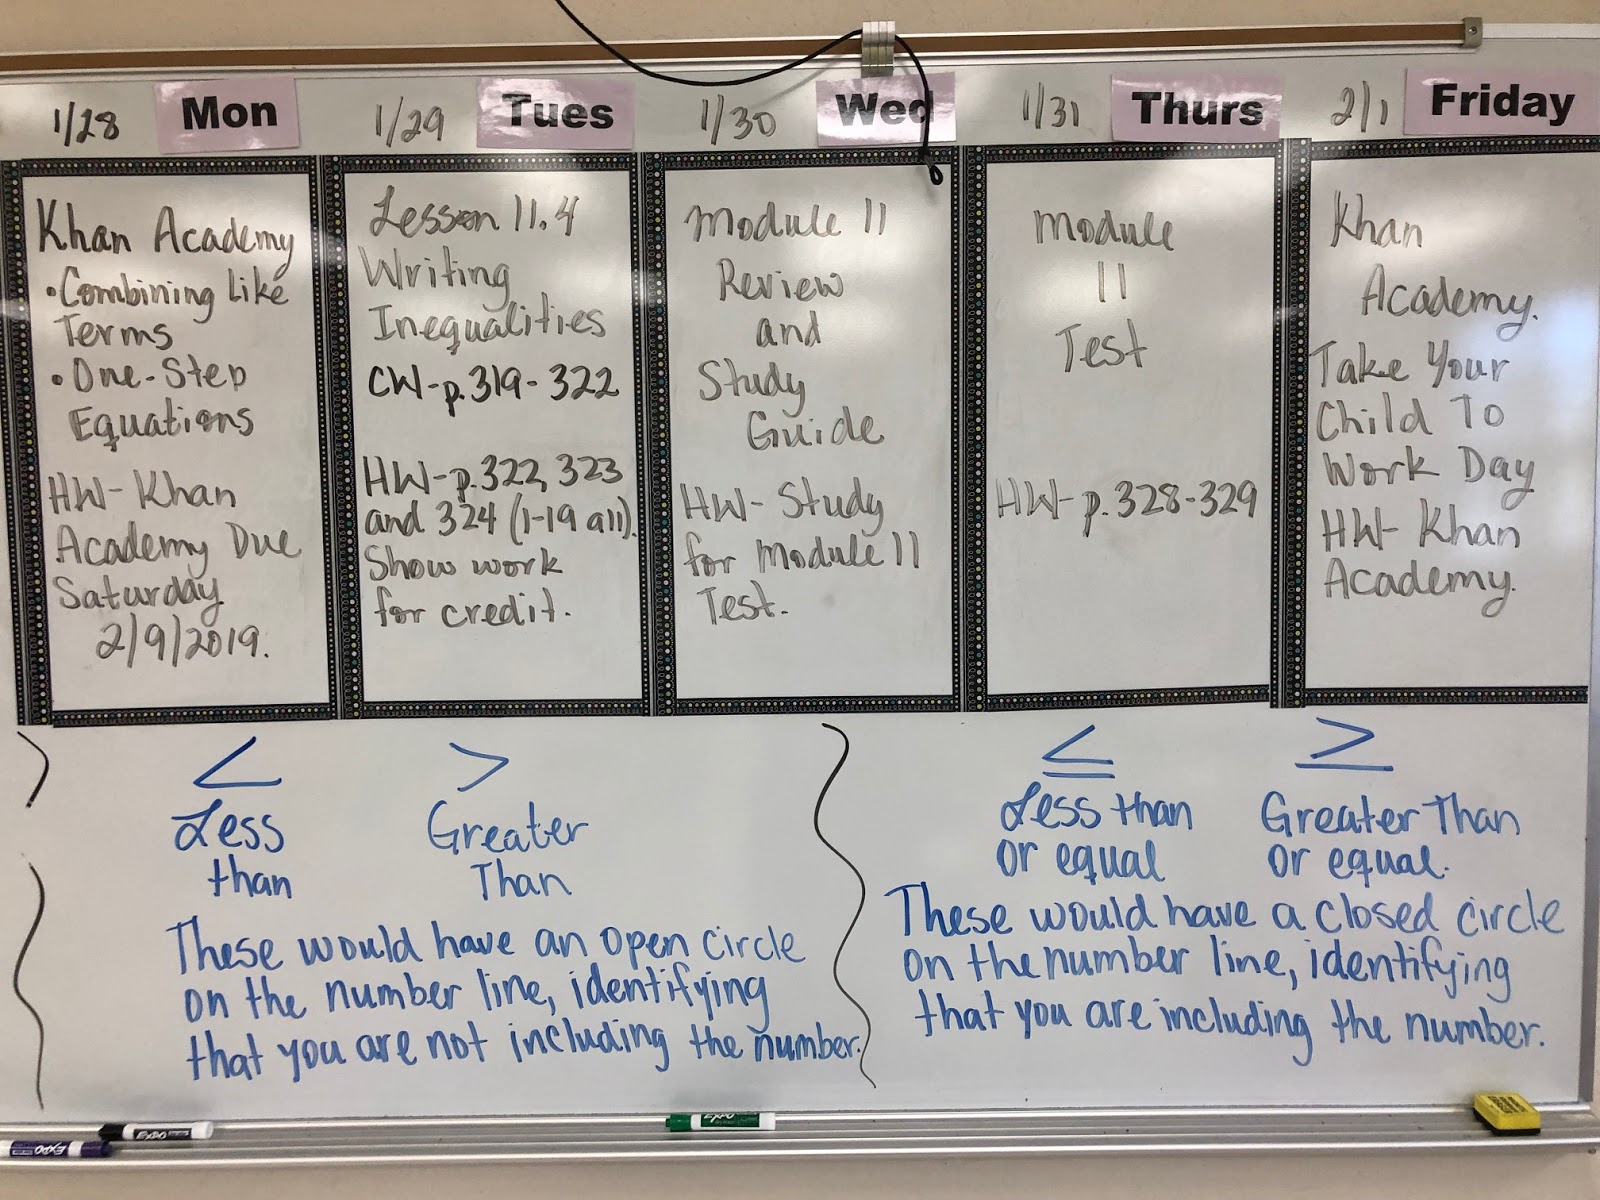 1/28 Mon
1/29 Tues
1/30 Wed
1/31 Thurs
2/1 Friday
Khan Academy
•Combining Like
Terms
•One-Step
Equations
HW-Khan
Academy Due
Saturday
2/9/2019.
Lesson 11.4
Writing
Inequalities
CW-p.319-322
HW-p.322,323
and 324 (1-19 all).
Show work
for credit.
Module 11
Review
and
Study
Guide
HW-Study
for Module 11
Test.
Module
11
Test
HW-p.328-329
Khan
Academy.
Take Your
Child To
Work Day
HW-Khan
Academy.
<
Less
than
>
Greater
Than
These would have an open circle
on the number line, identifying
that you are not including the number.
≤
Less than
or equal
≥
Greater Than
or equal.
These would have a closed circle
on the number line, identifying
that you are including the number.
EXPO
EXPO
EXPO